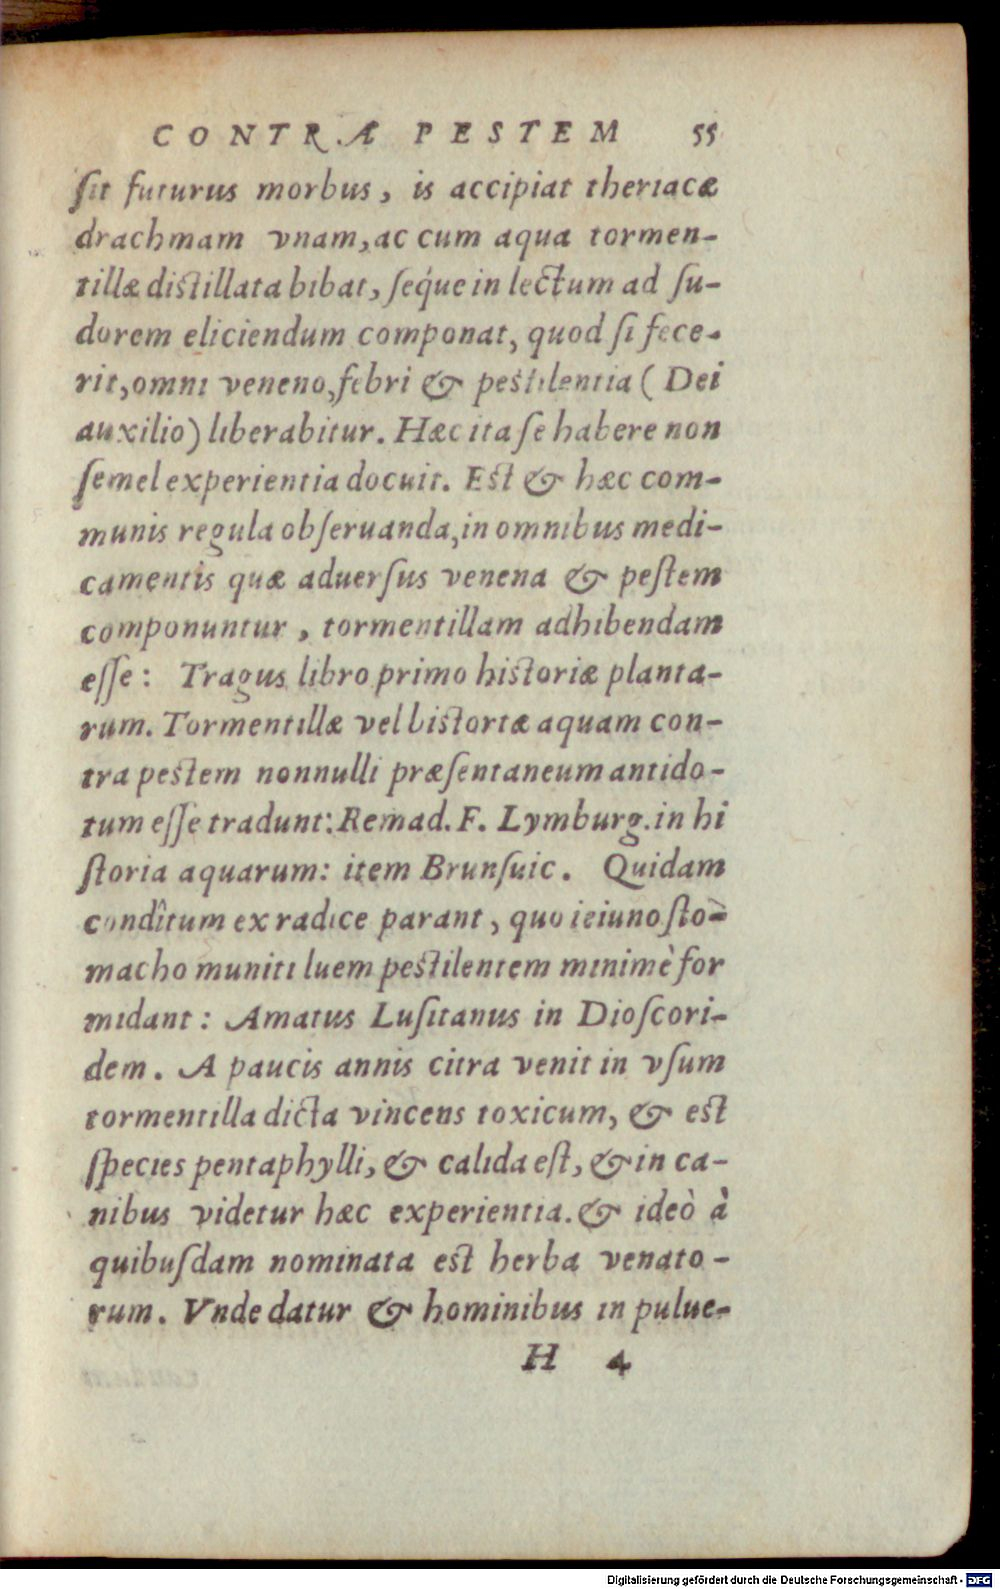 CONTRA PESTEM 55
ſit futurus morbus, is accipiat theriacæ
drachmam vnam, ac cum aqua tormen-
tillæ diſtillata bibat, ſeq́ue in lectum ad ſu-
dorem eliciendum componat, quod ſi fece-
rit, omni veneno, febri & peſtilentia (Dei
auxilio) liberabitur. Hæc ita ſe habere non
ſemel experientia docuit. Eſt & hæc com-
munis regula obſeruanda, in omnibus medi-
camentis quæ aduerſus venena & peſtem
componuntur, tormentillam adhibendam
eſſe: Tragus libro primo hiſtoriæ planta-
rum. Tormentillæ vel biſtortæ aquam con-
tra peſtem nonnulli præſentaneum antido-
tum eſſe tradunt: Remad. F. Lymburg. in hi
ſtoria aquarum: item Brunſuic. Quidam
condîtum ex radice parant, quo ieiuno ſto-
macho muniti luem peſtilentem minimè for
midant: Amatus Luſitanus in Dioſcori-
dem. A paucis annis citra venit in vſum
tormentilla dicta vincens toxicum, & eſt
ſpecies pentaphylli, & calida eſt, & in ca-
nibus videtur hæc experientia. & ideò à
quibuſdam nominata eſt herba venato-
rum. Vnde datur & hominibus in pulue-
H 4
Digitalisierung gefördert durch die Deutsche Forschungsgemeinschaft - DFG